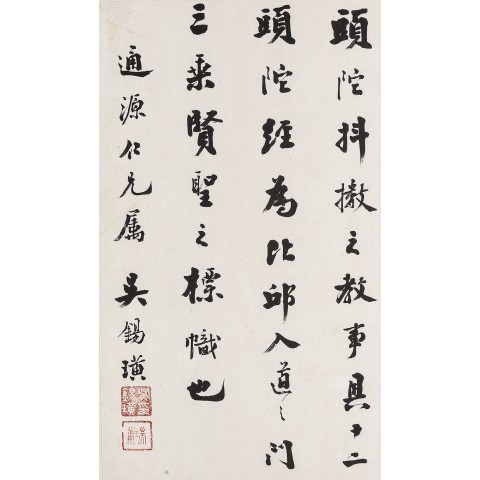 頭陀抖擻之教事具十二
頭陀經為比邱入道之門
三乘賢聖之標幟也
通源仁兄属 吳錫璜